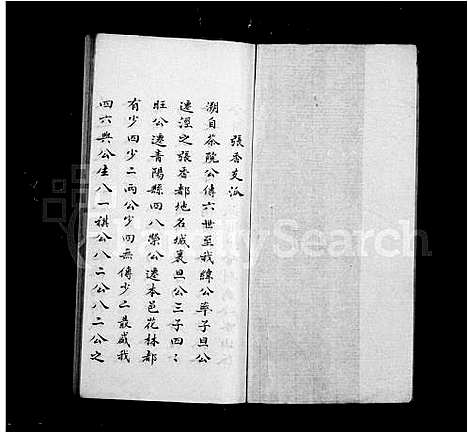 張香支派
溯自茶院公傳六世至我緯公率子旦公
遷涇之張香都地名城裏旦公三子四二
旺公遷青陽縣四八榮公遷本邑花林都
有少四少二兩公少四無傳少二最盛我
四六與公生八一祺公八二公八二公之
Search